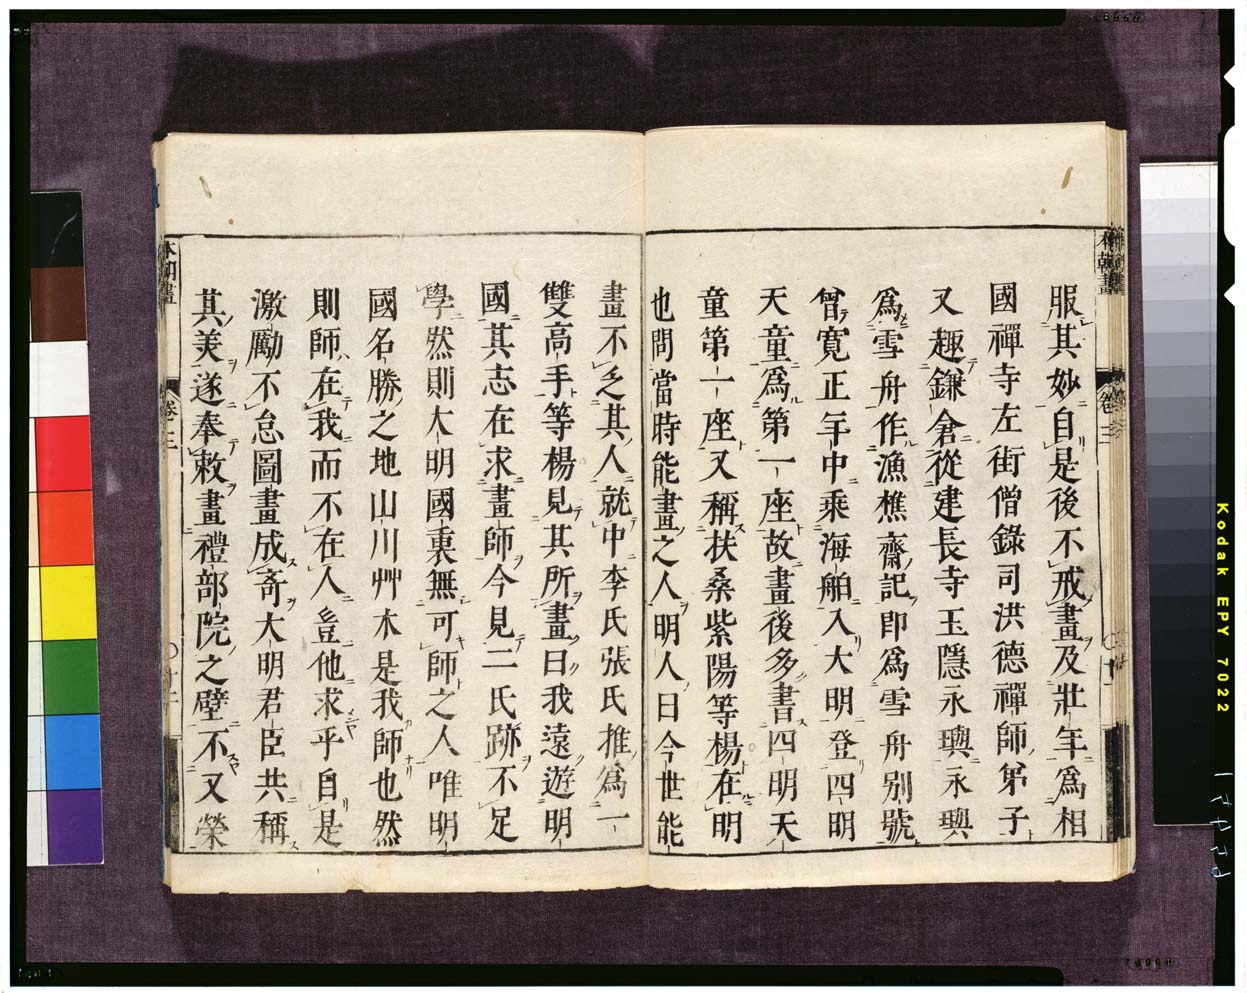 服其妙自是後不戒畫及壯年爲相
國禪寺左街僧錄司洪德禪師弟子
又趣鎌倉從建長寺玉隱永璵永璵
爲雪舟作漁樵齋記即爲雪舟別號
曾寛正年中乘海舶入大明登四明
天童爲第一座故畫後多書四明天
童第一座又稱扶桑紫陽等楊在明
也問當時能畫之人明人曰今世能
畫不乏其人就中李氏張氏推爲一
雙高手等楊見其所畫曰我遠遊明
國其志在求畫師今見二氏跡不足
學然則大明國裏無可師之人唯明
國名勝之地山川艸木是我師也然
則師在我而不在人豈他求乎自是
激勵不怠圖畫成奇大明君臣共稱
其美遂奉敕畫禮部院之壁不又榮
本朝畫
卷三
Kodak EPY 7022